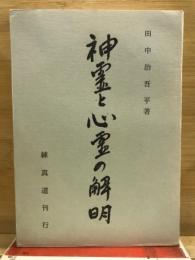 田中治吾平著
神霊と心霊の解明
錬真道刊行